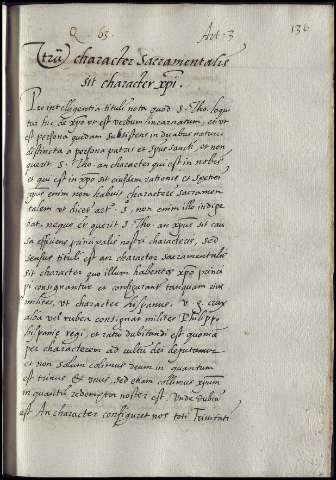 Q. 63. Art. 3 136
Utrũ character Sacramentalis
sit character xpi.
Pro intelligentia tituli nota quod S. Tho. loqui
tur hic de xpo ut est verbum incarnatum, et ut
est persona quædam subsistens in duabus naturis
distincta a persona patris et spūs sancti, et non
querit S. Tho. an character qui est in nobis
et qui est in xpo sit eiusdem rationis et speciei
enim non habuit characterē sacramen
talem ut dicet artº. 5, non enim illo indige
bat, neque et querit S. Tho. an xpus sit cau
sa efficiens principalis nostri characteris, sed
sensus tituli est an character sacramentalis
sit character quo illum habentes xpo princi
pi consignantur et configurantur tanquam eius
milites, ut character hispanus. v. g. crux
alba vel rubea consignat milites Philippo
hispaniæ regi, et ratio dubitandi est quoniã
per characterem ad cultũ dei deputamur
et non solum colimus deum in quantum
est trinus et unus, sed etiam colimus xpum
in quantũ redemptor noster est. Unde dubiũ
est An character configuret nos toti Trinitati